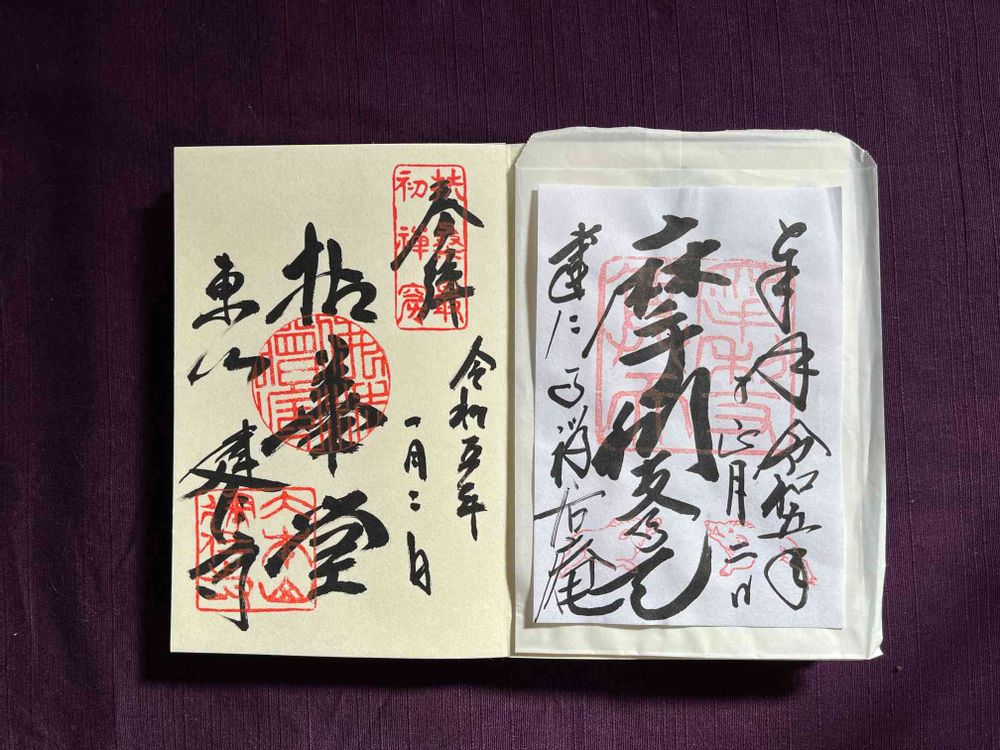 奉拝
令和五年
一月二日
拈華堂
東山
建仁寺
扶桑最
初禅窟
奉拝
令和五年
正月二日
摩利支尊天
建仁寺禅居庵